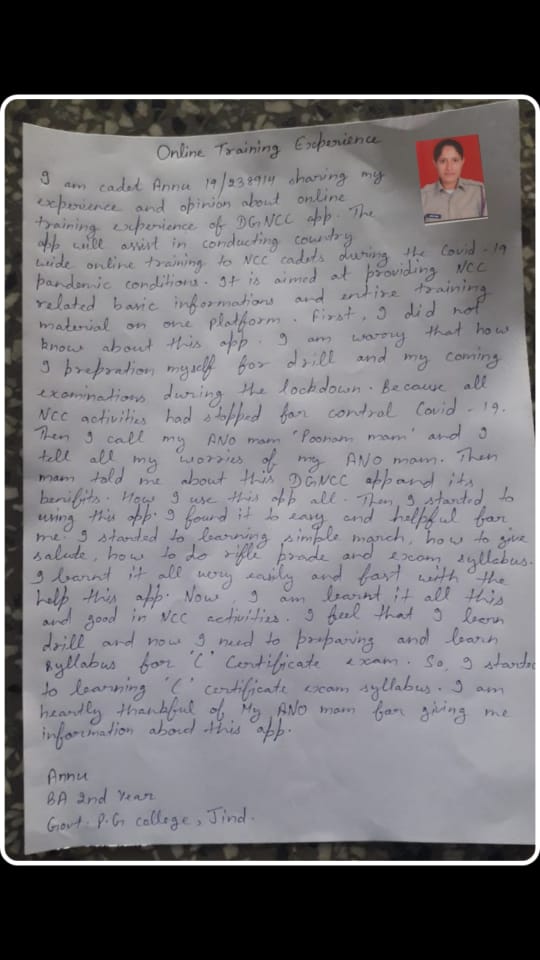 Online Training Experience
I am cadet Annu 19/238914 sharing my
experience and opinion about online
training experience of DGNCC app. The
app will assist in conducting country
wide online training to NCC cadets during the Covid-19
pandemic conditions. It is aimed at providing NCC
related basic informations and entire training
material on one platform. First, I did not
know about this app. I am worry that how
I prepration myself for drill and my coming
examinations during the lockdown. Because all
NCC activities had stopped for control Covid-19.
Then I call my ANO mam 'Poonam mam' and I
tell all my worries of my ANO mam. Then
mam told me about this DGNCC app and its
benifits. How I use this app all. Then I started to
using this app. I found it to easy and helpful for
me. I started to learning simple march, how to give
salute, how to do rifle prade and exam syllabus.
I learnt it all very easily and fast with the
help this app. Now, I am learnt it all this
and good in NCC activities. I feel that I learn
drill and now I need to preparing and learn
syllabus for 'C' Certificate exam. So, I started
to learning 'C' certificate exam syllabus. I am
heartly thankful of My ANO mam for giving me
information about this app.
Annu
BA 2nd Year
Govt. P.G College, Jind.